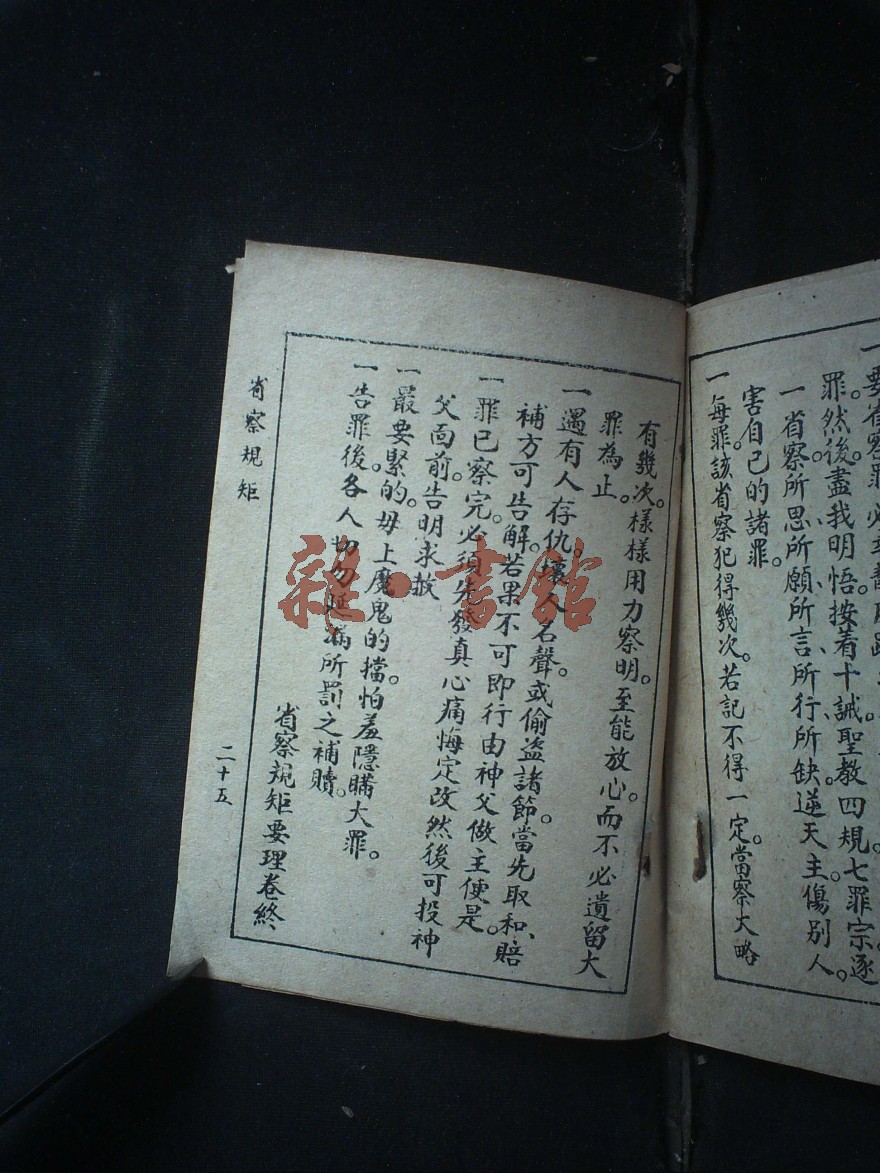 一要省察罪必
罪。然後。盡我明悟。按着十誡聖教四規七罪宗。逐
一省察。所思、所願、所言、所行、所缺。逆天主。傷別人。
害自己的諸罪。
一每罪。該省察犯得幾次。若記不得。一定當察大略
有幾次。樣樣用力察明。至能放心。而不必遺留大
罪為止。
一遇有人存仇。壞人名聲。或偷盜諸節。當先取和、賠
補方可告解。若果不可即行。由神父做主便是。
一罪已察完。必須先發真心痛悔定改然後可投神
父面前。告明求赦
一最要緊的。毋上魔鬼的擋。怕羞隱瞞大罪。
一告罪後各人切勿延漏所罰之補贖。
省察規矩要理卷終
省察規矩
二十五
雜·書館